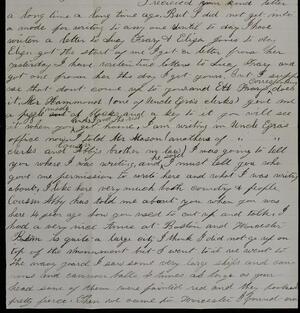 I received your kind letter
a long time a long time ago. But I did not get into
a mode for writing to any one until to day I have
writen a letter to Lucy Gray & Eliza Jones to day
Eliza got the start of me I got a letter from her
yesterday I have written letters to Lucy Gray and
got one from her the day I got yours. But
that dont come up to you and Ett Gray does
it. Mr Hammond (one of Uncle Ezra's clerks) give me
a and a key to it you will see
it when you get home. I am writing in Uncle Ezra's
office now. I told Mr Mason (another of
clerks and his brother in law) I was going to tell
you where I was writing, and I must tell you
give me permission to write here and what I was writing
about. I like here very much both country & people
Cousin Abby has told me about you when you was
here 4 years ago how you used to cut up and talk. I
had a very nice time at Boston and Worcester
Boston is quite a large city. I think I did not go up on
top of the monument but I want to we went to
the navy yard I saw some very large ships and can-
nons and cannon balls 4 times as large as your
head some of them were painted red and they looked
pretty fierce. Then we came to Worcester I found